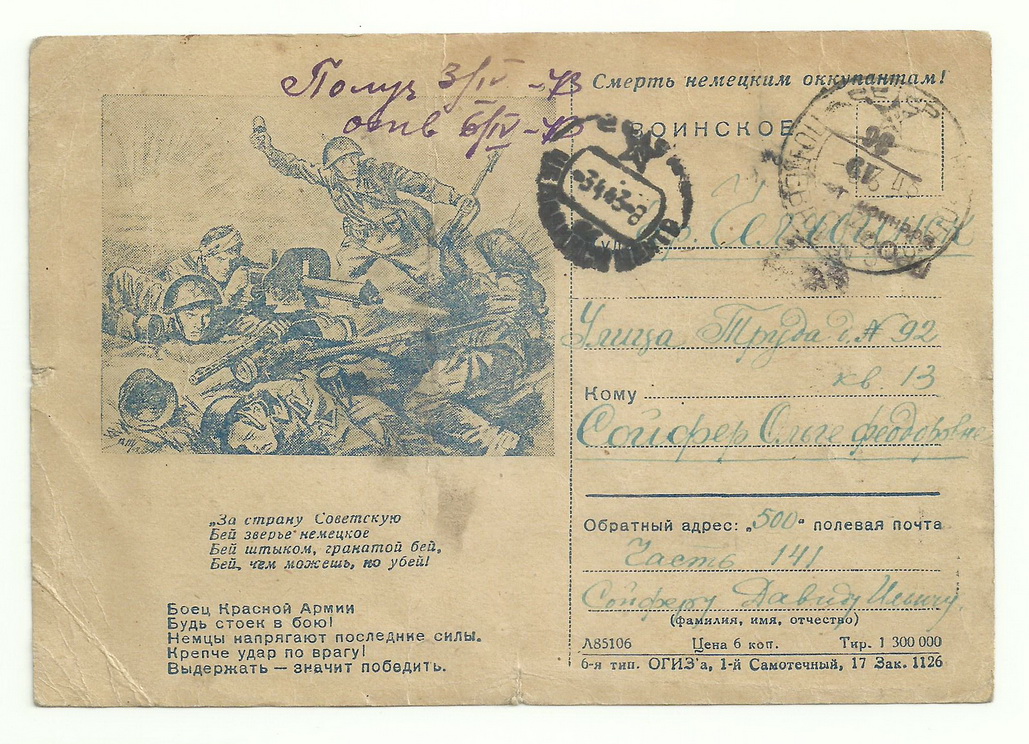 Получ 3/IV - 43
отв 6/IV - 43
Смерть немецким оккупантам!
ВОИНСКОЕ
гр. Челябинск
Улица Труда д. № 92
кв 13
Кому
Сойфер Ольге Феодоровне
„За страну Советскую
Бей зверье немецкое
Бей штыком, гранатой бей,
Бей, чем можешь, но убей!
Боец Красной Армии
Будь стоек в бою!
Немцы напрягают последние силы.
Крепче удар по врагу!
Выдержать — значит победить.
Обратный адрес: „500“ полевая почта
Часть 141
Сойферу Давиду Ильичу
(фамилия, имя, отчество)
Л85106 Цена 6 коп. Тир. 1 300 000
6-я тип. ОГИЗ'а, 1-й Самотечный, 17 Зак. 1126